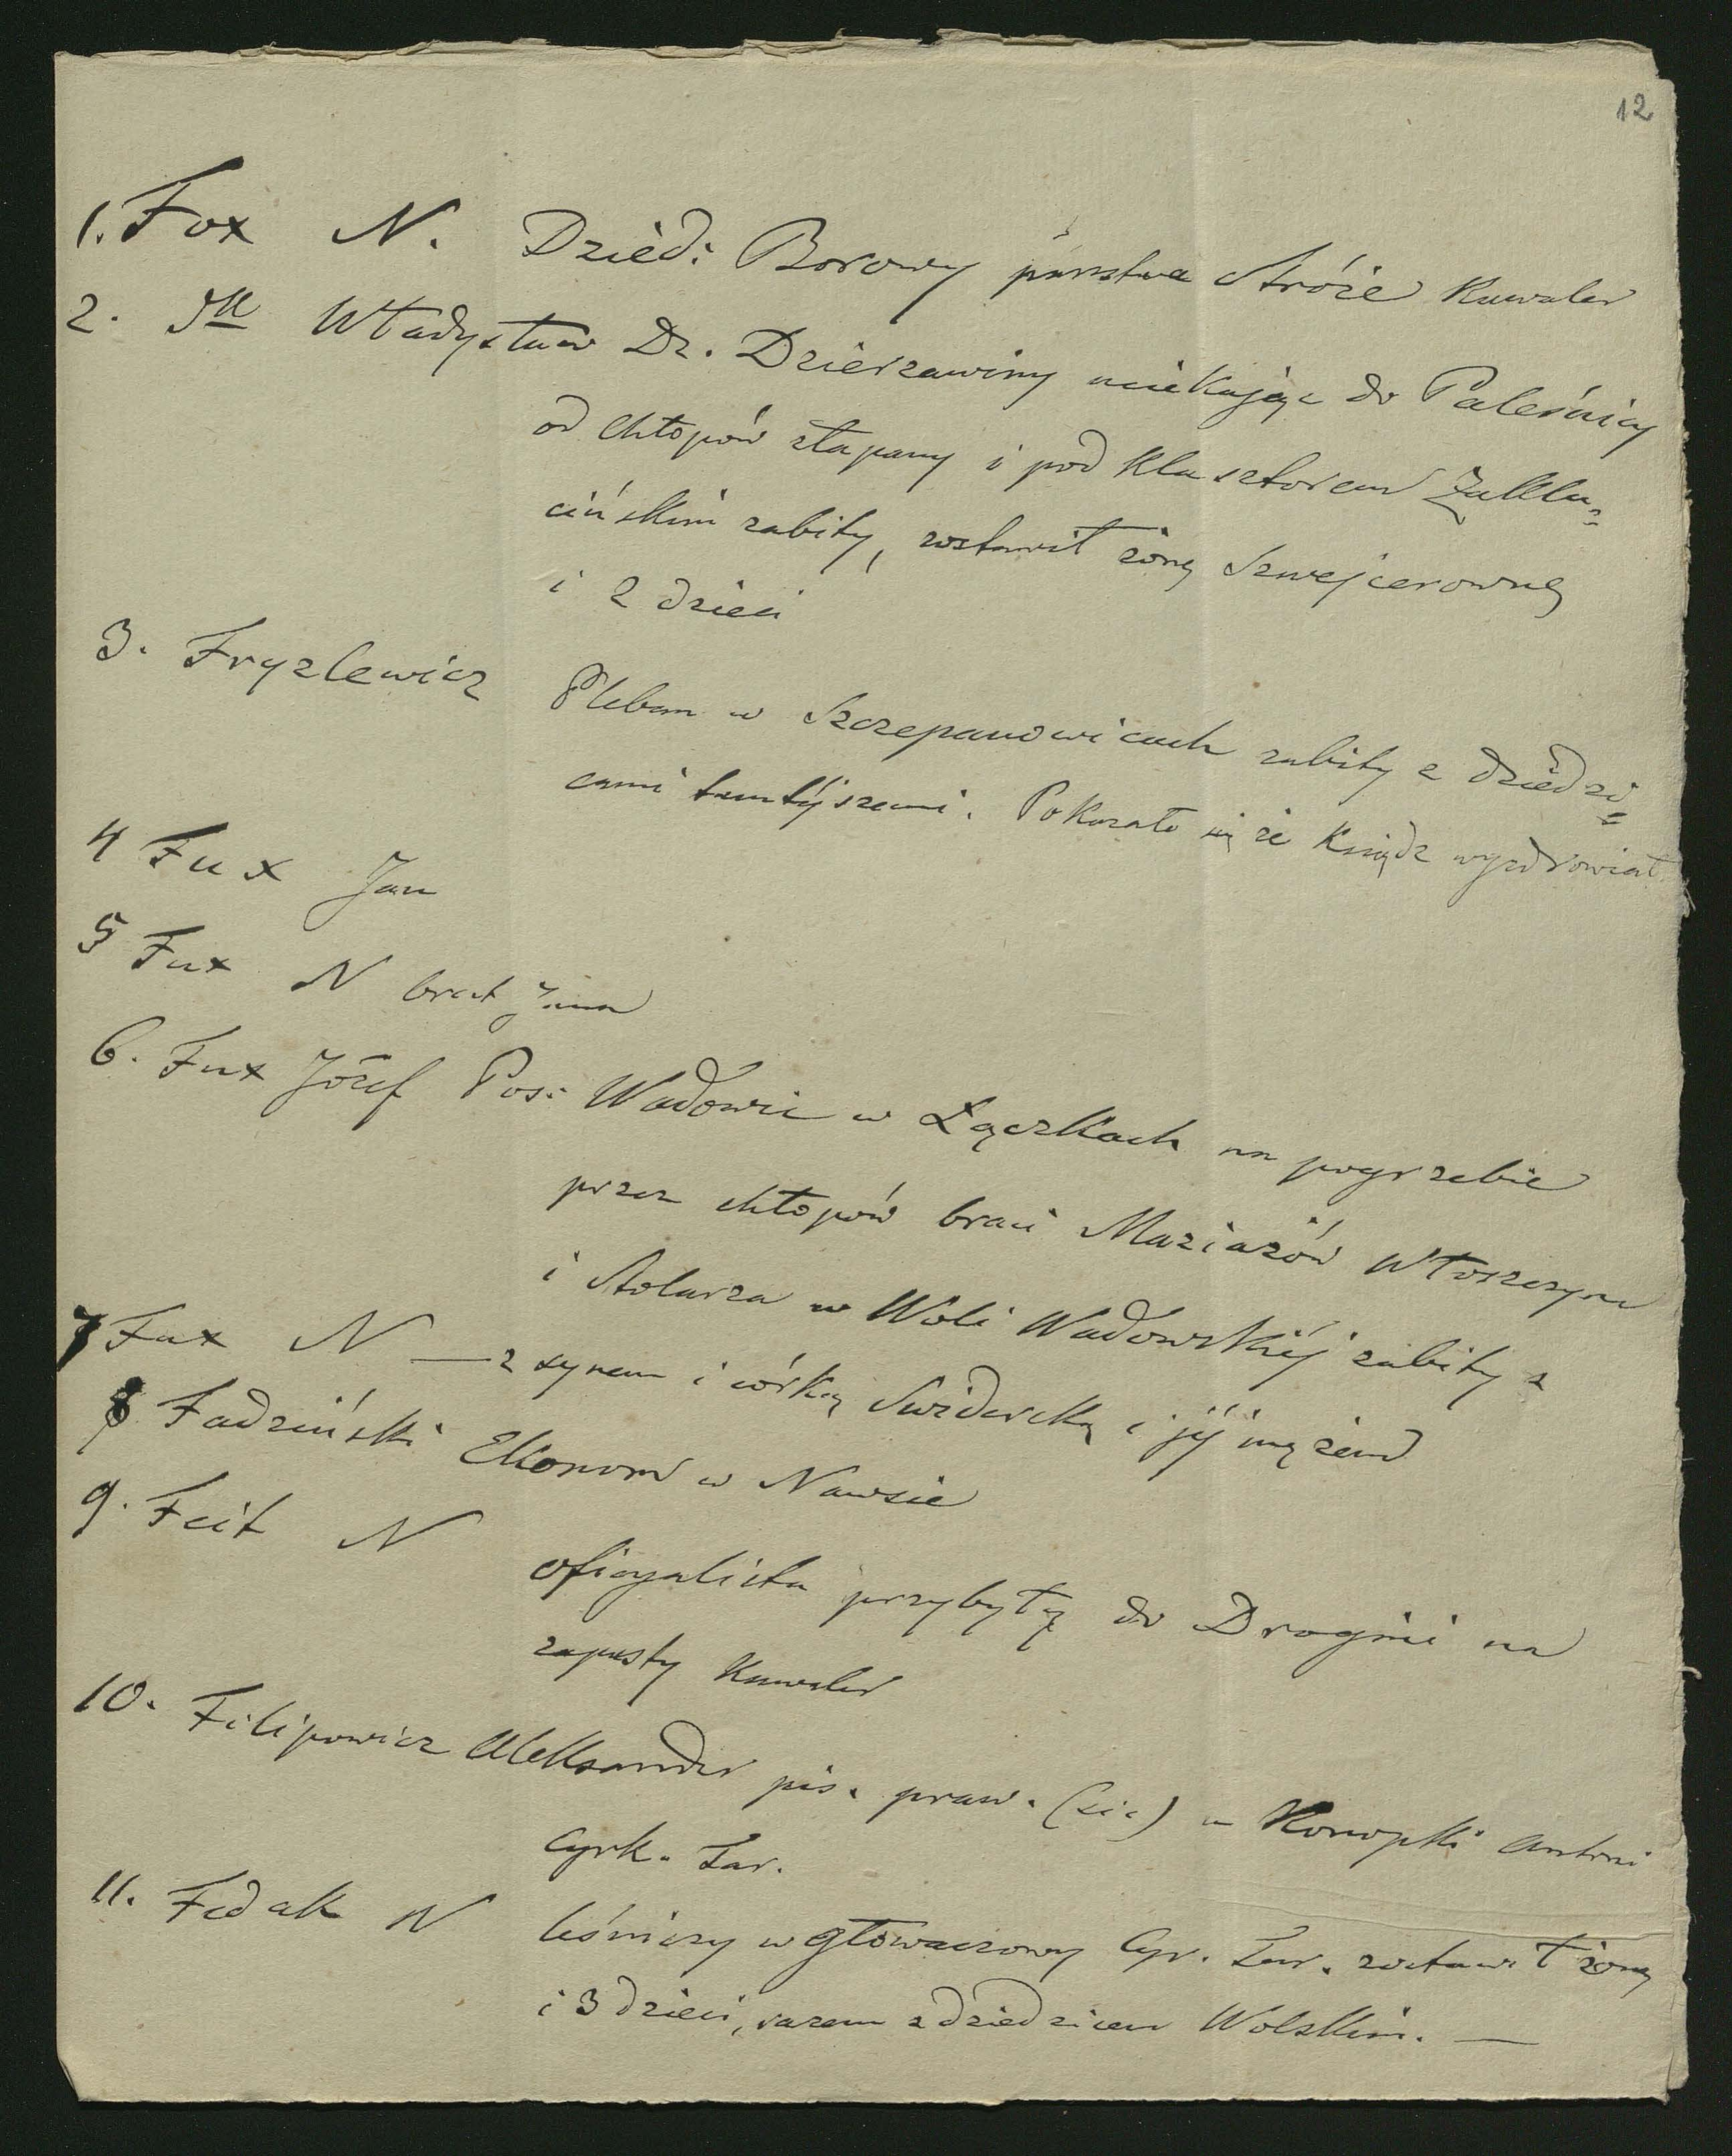 12
1. Fox N. Dzied: Borowy państwa Stróże Kawaler
2. Władysław Dz. Dzierzawiny uciekając do Paleśnicy
od chłopów złapany i pod klasztorem Zaklu=
cińskim zabity, zostawił żonę Szwejcerownę
i 2 dzieci
3. Fryzlewicz Pleban w Szczepanowicach zabity z dziedzi=
cami tamtéjszemi. Pokazało się że Ksiądz wyzdrowiał
4 Fux Jan
5 Fux N brat Jana
6. Fux Józef Pos: Wadowic w Łączkach na pogrzebie
przez chłopów braci Maziazów Włoszczyna
i Stolarza w Woli Wadowskiéj zabity z
7 Fux N — z synem i córką Swiderską i jéj mężem
8 Fadziński Ekonom w Nawsie
9. Feit N oficyalista przybyły do Drogini na
zapusty Kawaler
10. Filipowicz Aleksander pis. praw. (sic) u Konopki Antoni
Cyrk. Tar.
11. Fedak N leśniczy w Głowaczowy Cyr. Tar. zostawił żonę
i 3 dzieci, razem z dziedzicem Wolskim. —